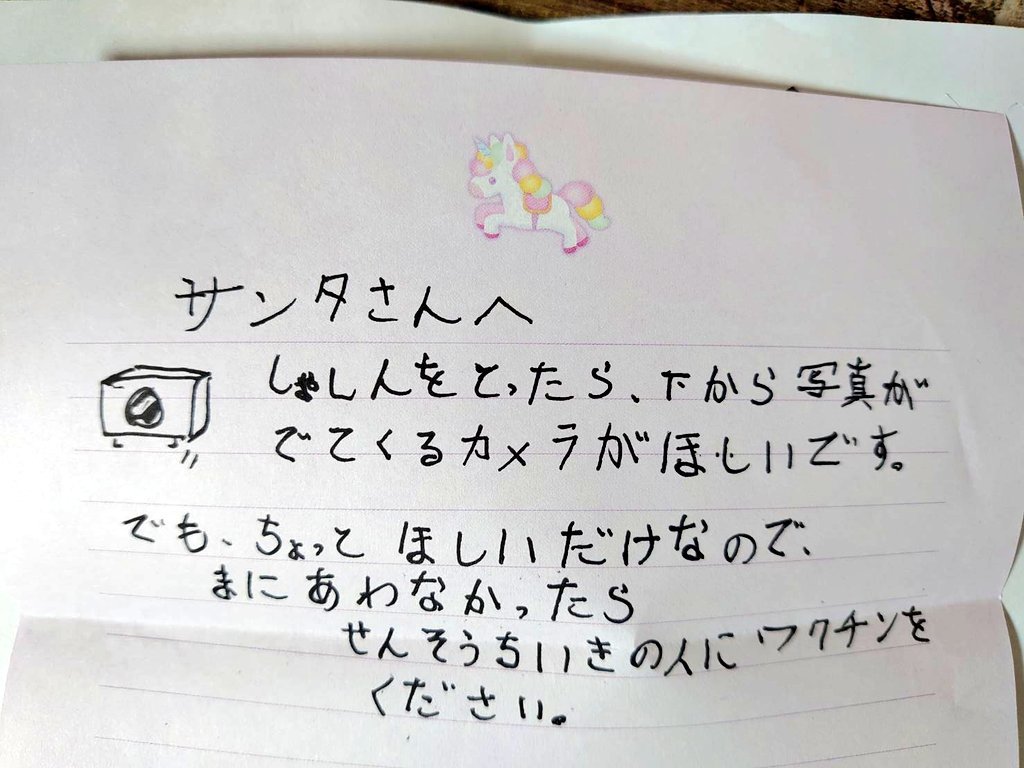 サンタさんへ
しゃしんをとったら、下から写真が
でてくるカメラがほしいです。
でも、ちょっとほしいだけなので、
まにあわなかったら
せんそうちいきの人にワクチンを
ください。